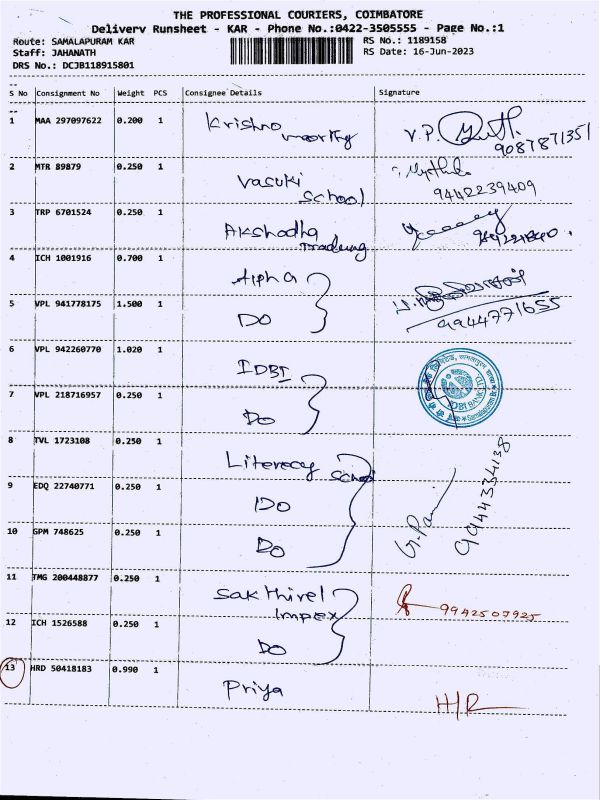 THE PROFESSIONAL COURIERS, COIMBATORE
Delivery Runsheet - KAR - Phone No.:0422-3505555 - Page No.:1
Route: SAMALAPURAM KAR RS No.: 1189158
Staff: JAHANATH RS Date: 16-Jun-2023
DRS No.: DCJB118915801
S No Consignment No Weight PCS Consignee Details Signature
1 MAA 297097622 0.200 1 Krishno moorthy V.P. 9087871351
2 MTR 89879 0.250 1 Vasuki School 9442239409
3 TRP 6701524 0.250 1 Akshadha Trading
4 ICH 1001916 0.700 1 Alpha
5 VPL 941778175 1.500 1 DO 9944771655
6 VPL 942260770 1.020 1 IDBI
7 VPL 218716957 0.250 1 Do
8 TVL 1723108 0.250 1 Literecy School
9 EDQ 22740771 0.250 1 DO G. Pani 9944334138
10 GPM 748625 0.250 1 Do
11 TMG 200448877 0.250 1 Sakthivel Impex 9942507925
12 ICH 1526588 0.250 1 Do
13 HRD 50418183 0.990 1 Priya H/R